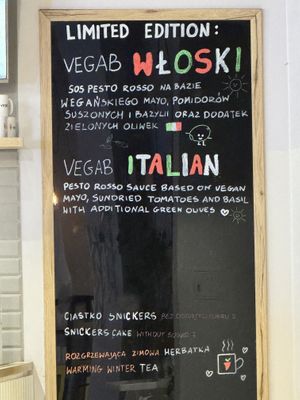 LIMITED EDITION:
VEGAB WŁOSKI
SOS PESTO ROSSO NA BAZIE
WEGAŃSKIEGO MAYO, POMIDORÓW
SUSZONYCH I BAZYLII ORAZ DODATEK
ZIELONYCH OLIWEK
VEGAB ITALIAN
PESTO ROSSO SAUCE BASED ON VEGAN
MAYO, SUNDRIED TOMATOES AND BASIL
WITH ADDITIONAL GREEN OLIVES
CIASTKO SNICKERS BEZ
SNICKERS CAKE WITHOUT
ROZGRZEWAJĄCA ZIMOWA HERBATKA
WARMING WINTER TEA